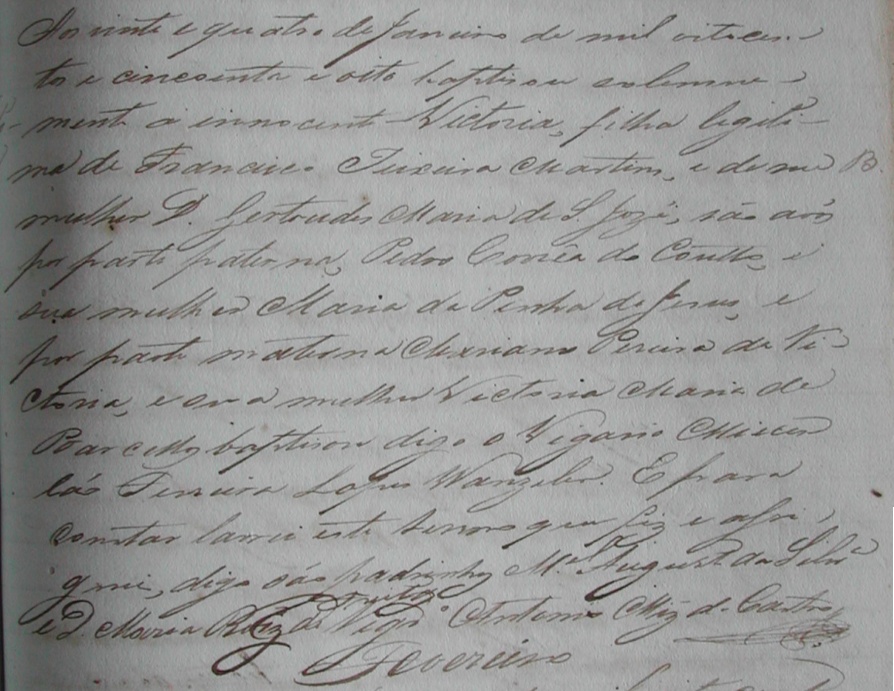 Aos vinte e quatro de Janeiro de mil oitocen-
to e cincoenta e oito baptisou solemne-
mente a innocente Victoria, filha legiti-
ma de Francisco Teixeira Martins, e de sua
mulher D. Gertrudes Maria de S. Jozé, são avós
por parte paterna, Pedro Corrêa do Coutto, e
sua mulher Maria da Penha de Jesus, e
por parte materna Mariano Pereira da Vi-
ctoria, e sua mulher Victoria Maria de
Barcellos baptisou digo o Vigario
Ferreira Lopes Wanzeler. E para
constar lavrei este termo que fiz e assi-
gnei, digo são padrinhos Mel. Augusto da Silva
e D. Maria Roiz de Freitas Vigro. Antonio Miz de Castro
Fevereiro